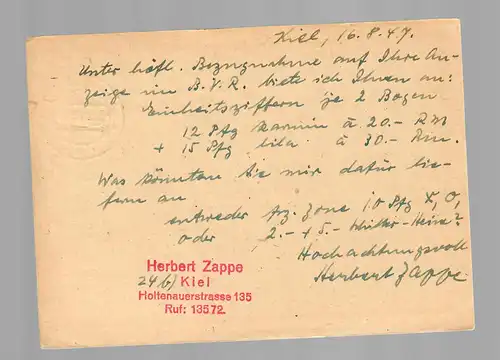 Kiel, 16.8.47.
Unter höfl. Bezugnahme auf Ihre An-
zeige im B.V.R. biete ich Ihnen an:
Einheitsziffern je 2 Bogen
12 Pfg karmin à 20.- RM
+ 15 Pfg lila à 30.- Rm.
Was könnten Sie mir dafür lie-
fern an
entweder frz. Zone 10 Pfg
oder 2.- + 5.- Schiller-Heine?
Hochachtungsvoll
Herbert Zappe
Herbert Zappe
24b) Kiel
Holtenauerstrasse 135
Ruf: 13572.